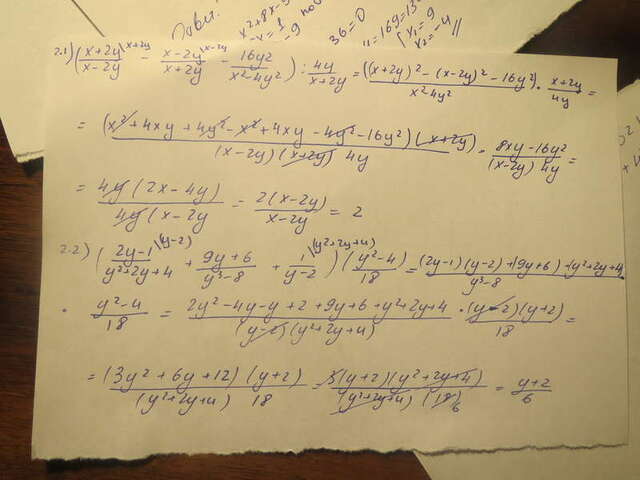 Давы.
x²+8x-9
-x=1
-9
36=0
=169=13²
[x₁=9
x₂=-4 ||
2.1) ((x+2y)/(x-2y) |x+2y - (x-2y)/(x+2y) |x-2y - 16y²/(x²-4y²)) : 4y/(x+2y) = ((x+2y)²-(x-2y)²-16y²)/(x²4y²) · (x+2y)/4y =
= (x²+4xy+4y²-x²+4xy-4y²-16y²)(x+2y)/((x-2y)(x+2y) 4y) = (8xy-16y²)/((x-2y) 4y) =
= 4y(2x-4y)/(4y(x-2y) = 2(x-2y)/(x-2y) = 2
2.2) ((2y-1)/(y²+2y+4) |(y-2) + (9y+6)/(y³-8) + 1/(y-2) |(y²+2y+4)) ((y²-4)/18) = ((2y-1)(y-2)+(9y+6)+(y²+2y+4))/(y³-8) ·
· (y²-4)/18 = (2y²-4y-y+2+9y+6+y²+2y+4)/((y-2)(y²+2y+4)) · (y-2)(y+2)/18 =
= (3y²+6y+12)(y+2)/((y²+2y+4) 18) = 3(y+2)(y²+2y+4)/((y²+2y+4)(18)6) = (y+2)/6